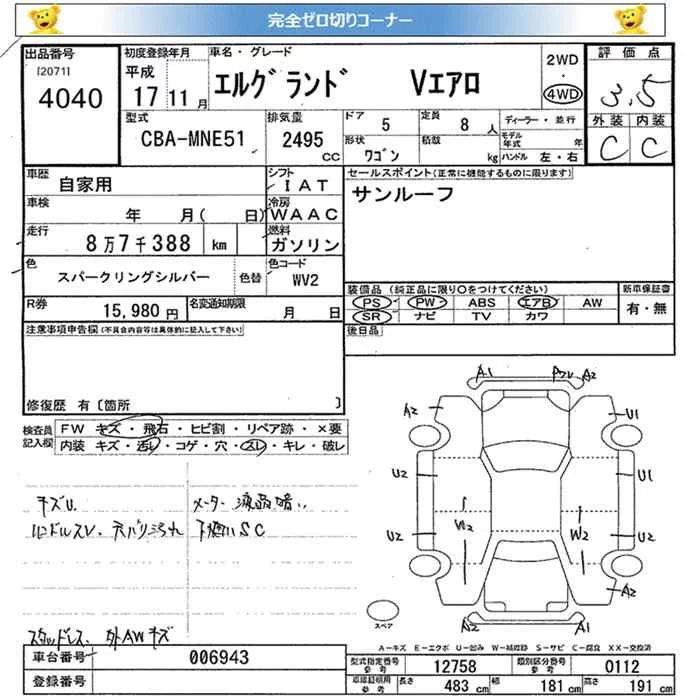 完全ゼロ切りコーナー
出品番号
[2071]
4040
初度登録年月
平成
17 11月
車名・グレード
エルグランド Vエアロ
2WD
・
4WD
評価点
3.5
外装 内装
C C
型式
CBA-MNE51
排気量
2495
CC
ドア 5
定員 8 人
形状 ワゴン
積載 kg
ディーラー・並行
モデル年式 年
ハンドル 左・右
車歴
自家用
シフト
IAT
車検
年 月( 日)
冷房
WAAC
走行
8万7千388 km
燃料
ガソリン
色
スパークリングシルバー
色替
色コード
WV2
R券
15,980 円
名変通知期限
月 日
セールスポイント(正常に機能するものに限ります)
サンルーフ
装備品 (純正品に限り○をつけてください)
PS PW ABS エアB AW
SR ナビ TV カワ
新車保証書
有・無
後日品
注意事項申告欄(不具合内容等は具体的に記入して下さい)
修復歴 有 [箇所 ]
検査員記入欄
FW キズ・飛石・ヒビ割・リペア跡・×要
内装 キズ・汚レ・コゲ・穴・スレ・キレ・破レ
キズU.
ハンドルスレ. 天バリ汚れ
メーター液晶暗い
下廻りSC
スタッドレス. 外AWキズ
A1 A2
A2 U1
U2 U1
W2 W2
U2 U2
A2
A2 A1
スペア
A-キズ E-エクボ U-凹み W-補修跡 S-サビ C-腐食 XX-交換済
車台番号
006943
登録番号
型式指定番号
参考
12758
類別区分番号
参考
0112
車庫証明用
参考
長さ 483 cm
幅 181 cm
高さ 191 cm